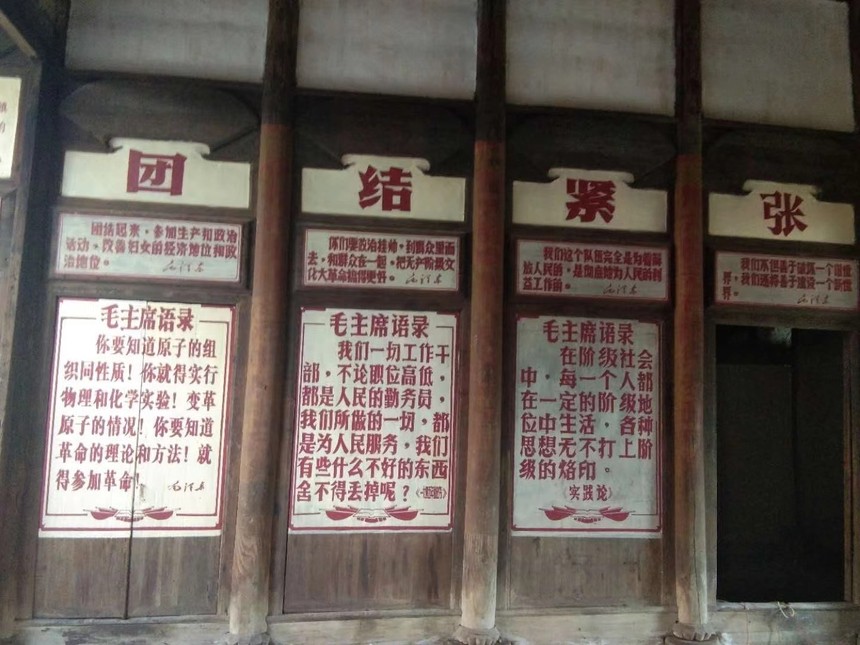 团
结
紧
张
团结起来,参加生产和政治
活动,改善妇女的经济地位和政
治地位。
毛泽东
你们要政治挂帅,到群众里面
去,和群众在一起,把无产阶级文
化大革命搞得更好。
毛泽东
我们这个队伍完全是为着解
放人民的,是彻底地为人民的利
益工作的。
毛泽东
我们不但善于破坏一个旧世
界,我们还将善于建设一个新世
界。
毛泽东
毛主席语录
你要知道原子的组
织同性质!你就得实行
物理和化学实验!变革
原子的情况!你要知道
革命的理论和方法!就
得参加革命!
毛泽东
毛主席语录
我们一切工作干
部,不论职位高低,
都是人民的勤务员,
我们所做的一切,都
是为人民服务,我们
有些什么不好的东西
舍不得丢掉呢?
毛主席语录
在阶级社会
中,每一个人都
在一定的阶级地
位中生活,各种
思想无不打上阶
级的烙印。
《实践论》